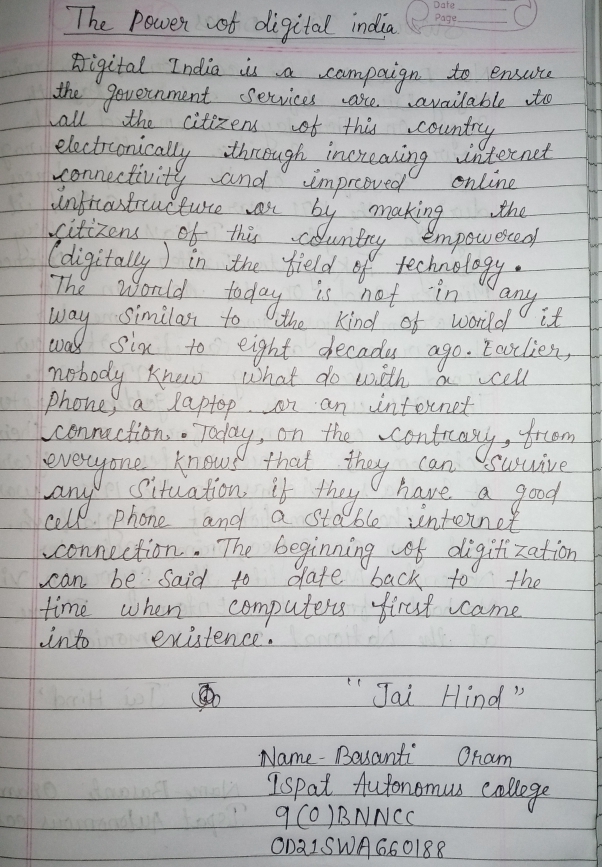 Date
Page
The Power of digital india
Digital India is a campaign to ensure
the government services are available to
all the citizens of this country
electronically through increasing internet
connectivity and improved online
infrastructure or by making the
citizens of this country empowered
(digitally) in the field of technology.
The World today is not in any
way similar to the kind of world it
was six to eight decades ago. Earlier,
nobody knew what do with a cell
phone, a laptop or an internet
connection. Today, on the contrary, from
everyone knows that they can survive
any situation if they have a good
cell phone and a stable internet
connection. The beginning of digitization
can be said to date back to the
time when computers first came
into existence.
"Jai Hind"
Name - Basanti Oram
Ispat Autonomus college
9(O)BNNCC
OD21SWA660188